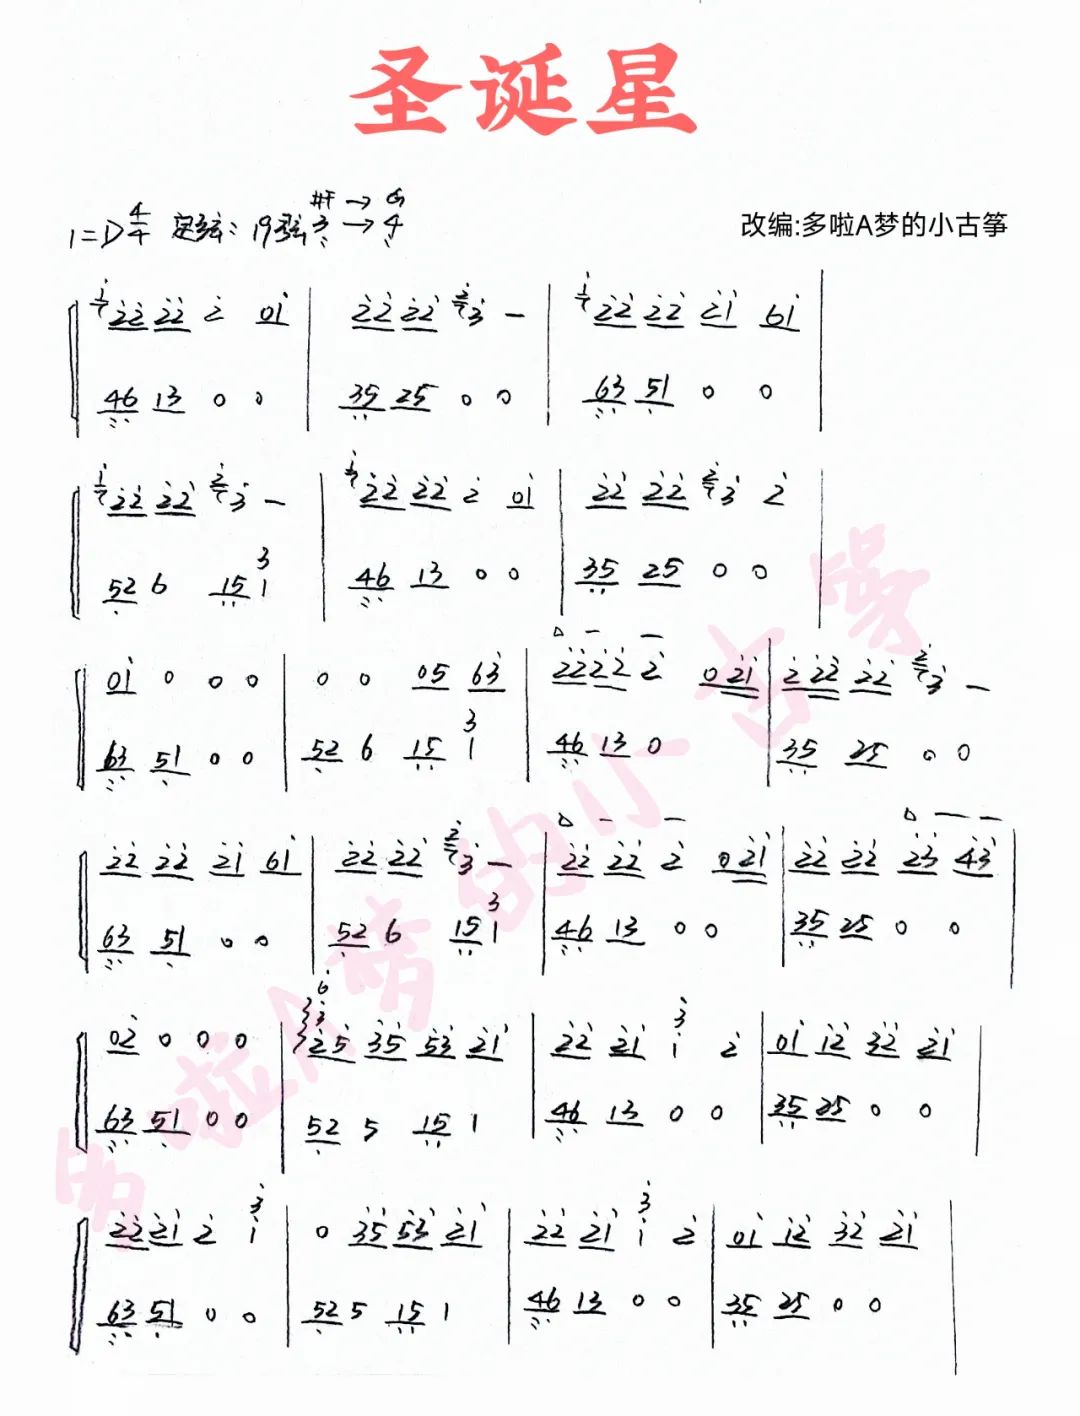 圣诞星
#F → G
1=D 4/4 定弦: 19弦 3 → 4
改编:多啦A梦的小古筝
1 22 22 2 01 | 22 22 2 3 — | 1 22 22 21 61 |
46 13 0 0 | 35 25 0 0 | 63 51 0 0 |
1 22 22 2 3 — | 1 22 22 2 01 | 22 22 2 3 2 |
52 6 15 3 1 | 46 13 0 0 | 35 25 0 0 |
01 0 0 0 | 0 0 05 63 | 22 22 2 0 21 | 2 22 22 2 3 — |
63 51 0 0 | 52 6 15 3 1 | 46 13 0 | 35 25 0 0 |
22 22 21 61 | 22 22 2 3 — | 22 22 2 0 21 | 22 22 23 43 |
63 51 0 0 | 52 6 15 3 1 | 46 13 0 0 | 35 25 0 0 |
02 0 0 0 | 6 3 25 35 53 21 | 22 21 3 1 2 | 01 12 32 21 |
63 51 0 0 | 52 5 15 1 | 46 13 0 0 | 35 25 0 0 |
22 21 2 3 1 | 0 35 53 21 | 22 21 3 1 2 | 01 12 32 21 |
63 51 0 0 | 52 5 15 1 | 46 13 0 0 | 35 25 0 0 |
多啦A梦的小古筝